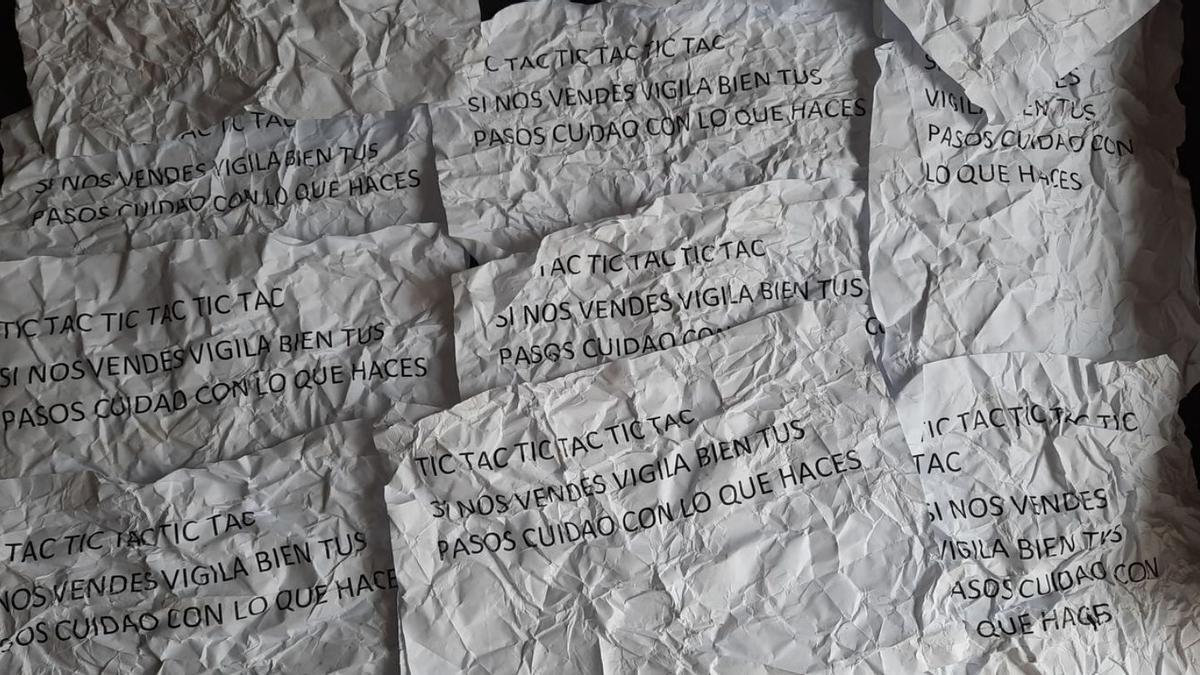 C TAC TIC TAC TIC TAC
SI NOS VENDES VIGILA BIEN TUS
PASOS CUIDAO CON LO QUE HACES
VIGIL EN TUS
PASOS CUIDAO CON
LO QUE HACES
AC TIC TAC
SI NOS VENDES VIGILA BIEN TUS
PASOS CUIDAO CON LO QUE HACES
TAC TIC TAC TIC TAC
SI NOS VENDES VIGILA BIEN TUS
PASOS CUIDAO CON
TIC TAC TIC TAC TIC TAC
SI NOS VENDES VIGILA BIEN TUS
PASOS CUIDAO CON LO QUE HACES
TIC TAC TIC TAC TIC TAC
SI NOS VENDES VIGILA BIEN TUS
PASOS CUIDAO CON LO QUE HACES
TIC TAC TIC TAC TIC
TAC
SI NOS VENDES
VIGILA BIEN TUS
ASOS CUIDAO CON
QUE HACES
TAC TIC TAC TIC TAC
NOS VENDES VIGILA BIEN TUS
SOS CUIDAO CON LO QUE HACE